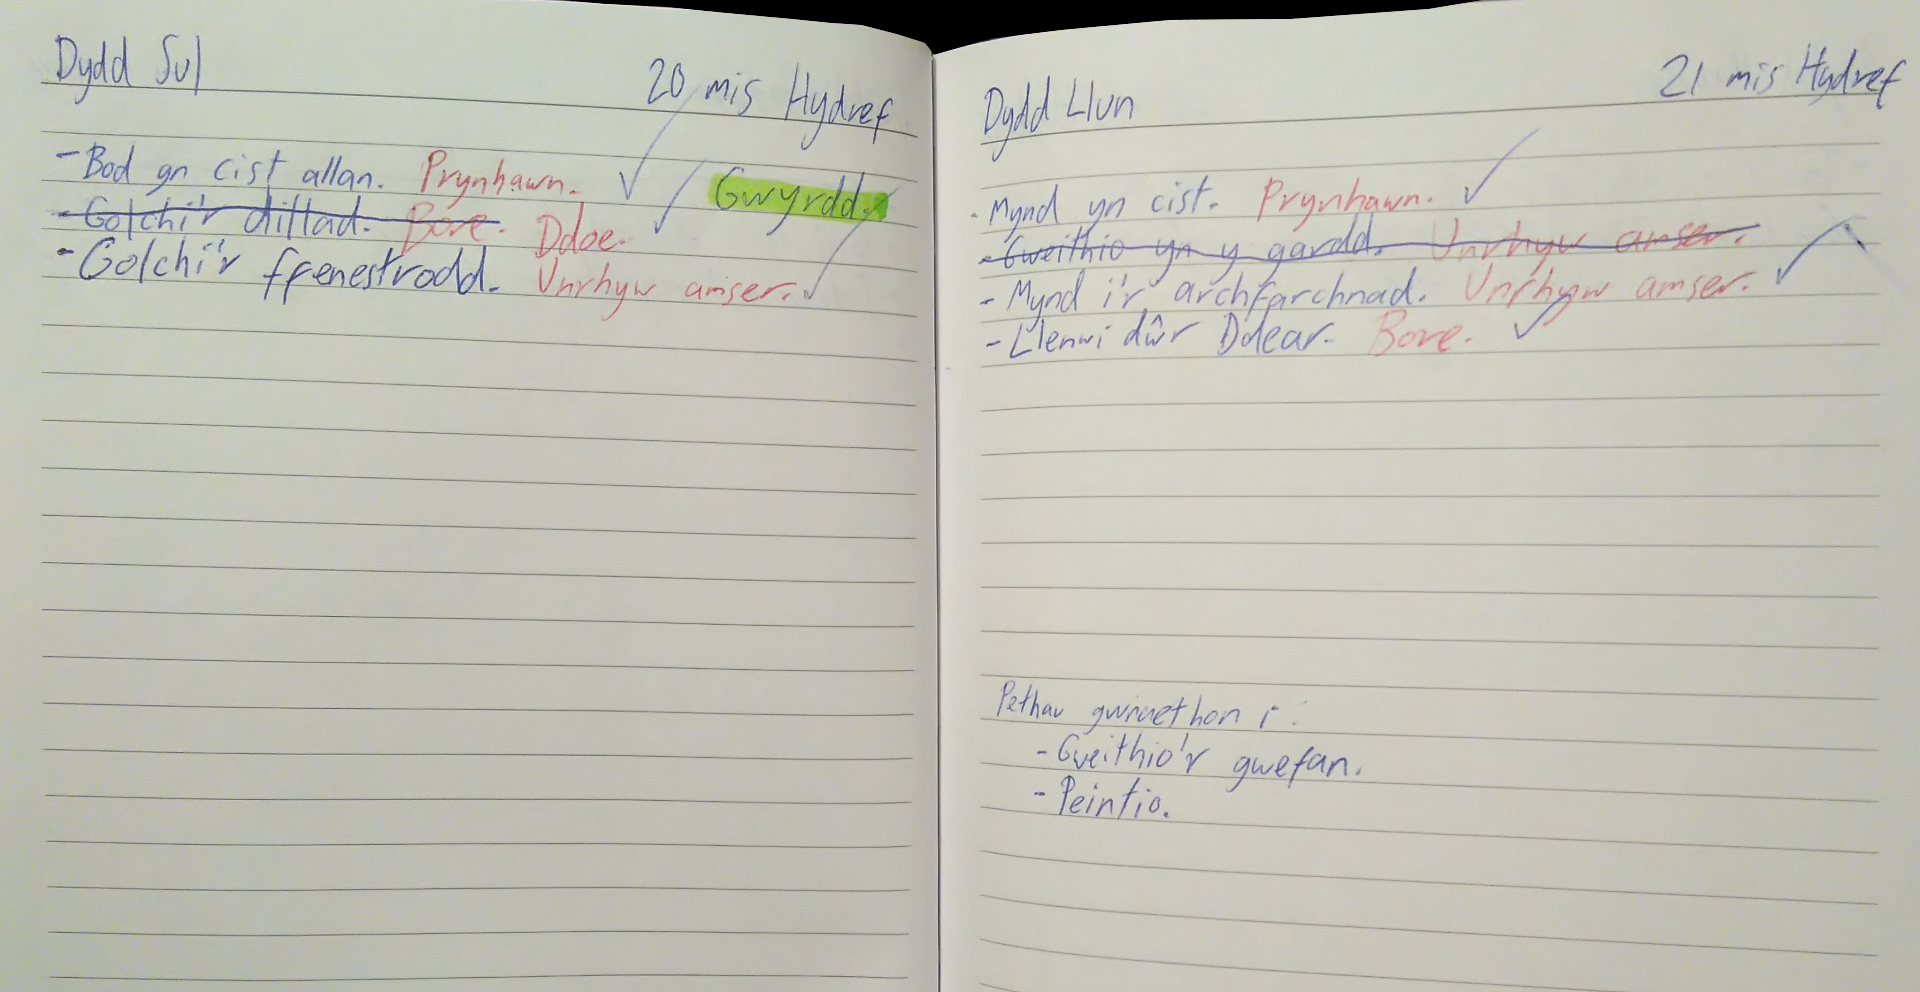 Dydd Sul
20 mis Hydref
- Bod yn cist allan. Prynhawn. ✓
- Golchi'r dillad. Bore. Ddoe. ✓ Gwyrdd.
- Golchi'r ffenestrodd. Unrhyw amser. ✓
Dydd Llun
21 mis Hydref
- Mynd yn cist. Prynhawn. ✓
- Gweithio yn y gardd. Unrhyw amser.
- Mynd i'r archfarchnad. Unrhyw amser. ✓
- Llenwi dŵr Ddear. Bore. ✓
Pethau i:
- Gweithio'r gwefan.
- Peintio.